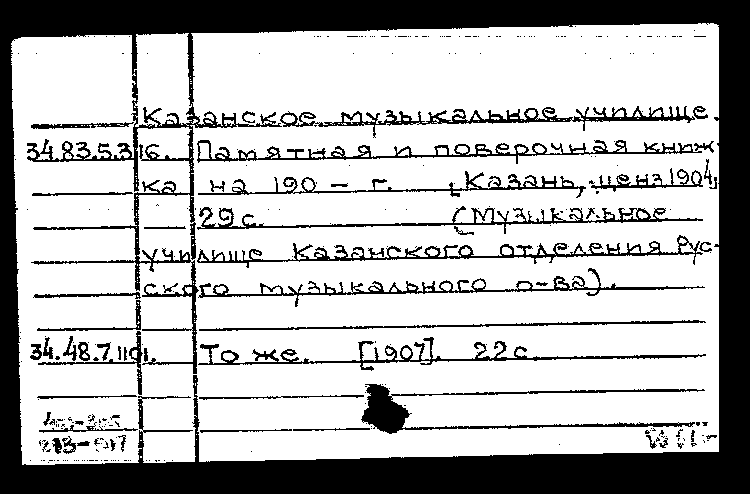 Казанское музыкальное училище.
34.83.5.316. Памятная и поверочная книж-
ка на 190 – г. [Казань, ценз 1904,
29 с. (Музыкальное
училище Казанского отделения Рус-
ского музыкального о-ва).
34.48.7.1101. То же. [1907]. 22 с.
213-517